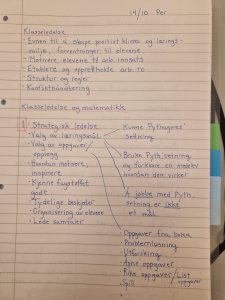 14/10 Per
Klasseledelse
- Evnen til å skape positivt klima og lærings-
miljø, forventninger til elevene
- Motivere elevene til arb. innsats
- Etablere og opprettholde arb. ro
- Struktur og regler
- Konflikthåndtering
Klasseledelse og matematikk
1 Strategisk ledelse
- Valg av læringsmål
- Valg av oppgaver/
opplegg
- Hvordan motivere,
inspirere
- Kjenne fagstoffet
godt
- Tydelige beskjeder
- Organisering av elevene
- Lede samtaler
Kunne Pythagoras'
setning
Bruke Pyth.setning
og forklare en medelev
hvordan den virker
Å jobbe med Pyth.
setning er ikke
et mål
Oppgaver fra boka
Problemløsning
Utforsking
Åpne oppgaver
Rike oppgaver/LIST
oppgaver
Spill